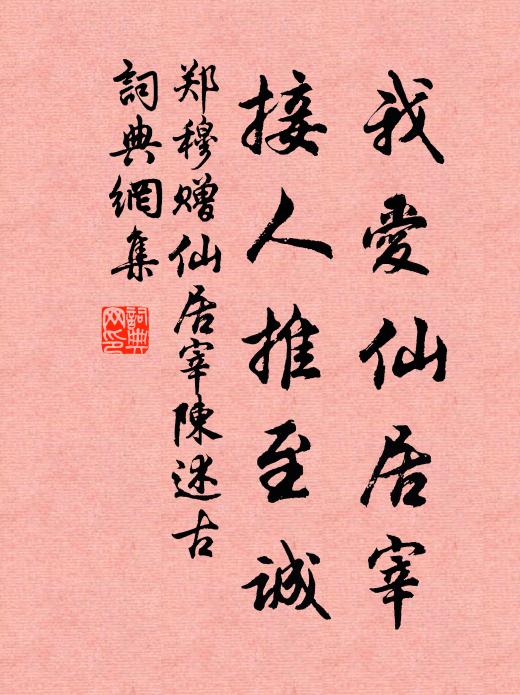 我愛仙居宰
接人推至誠
郑穆赠仙居宰陳述古
詞典網集
詞典
网印